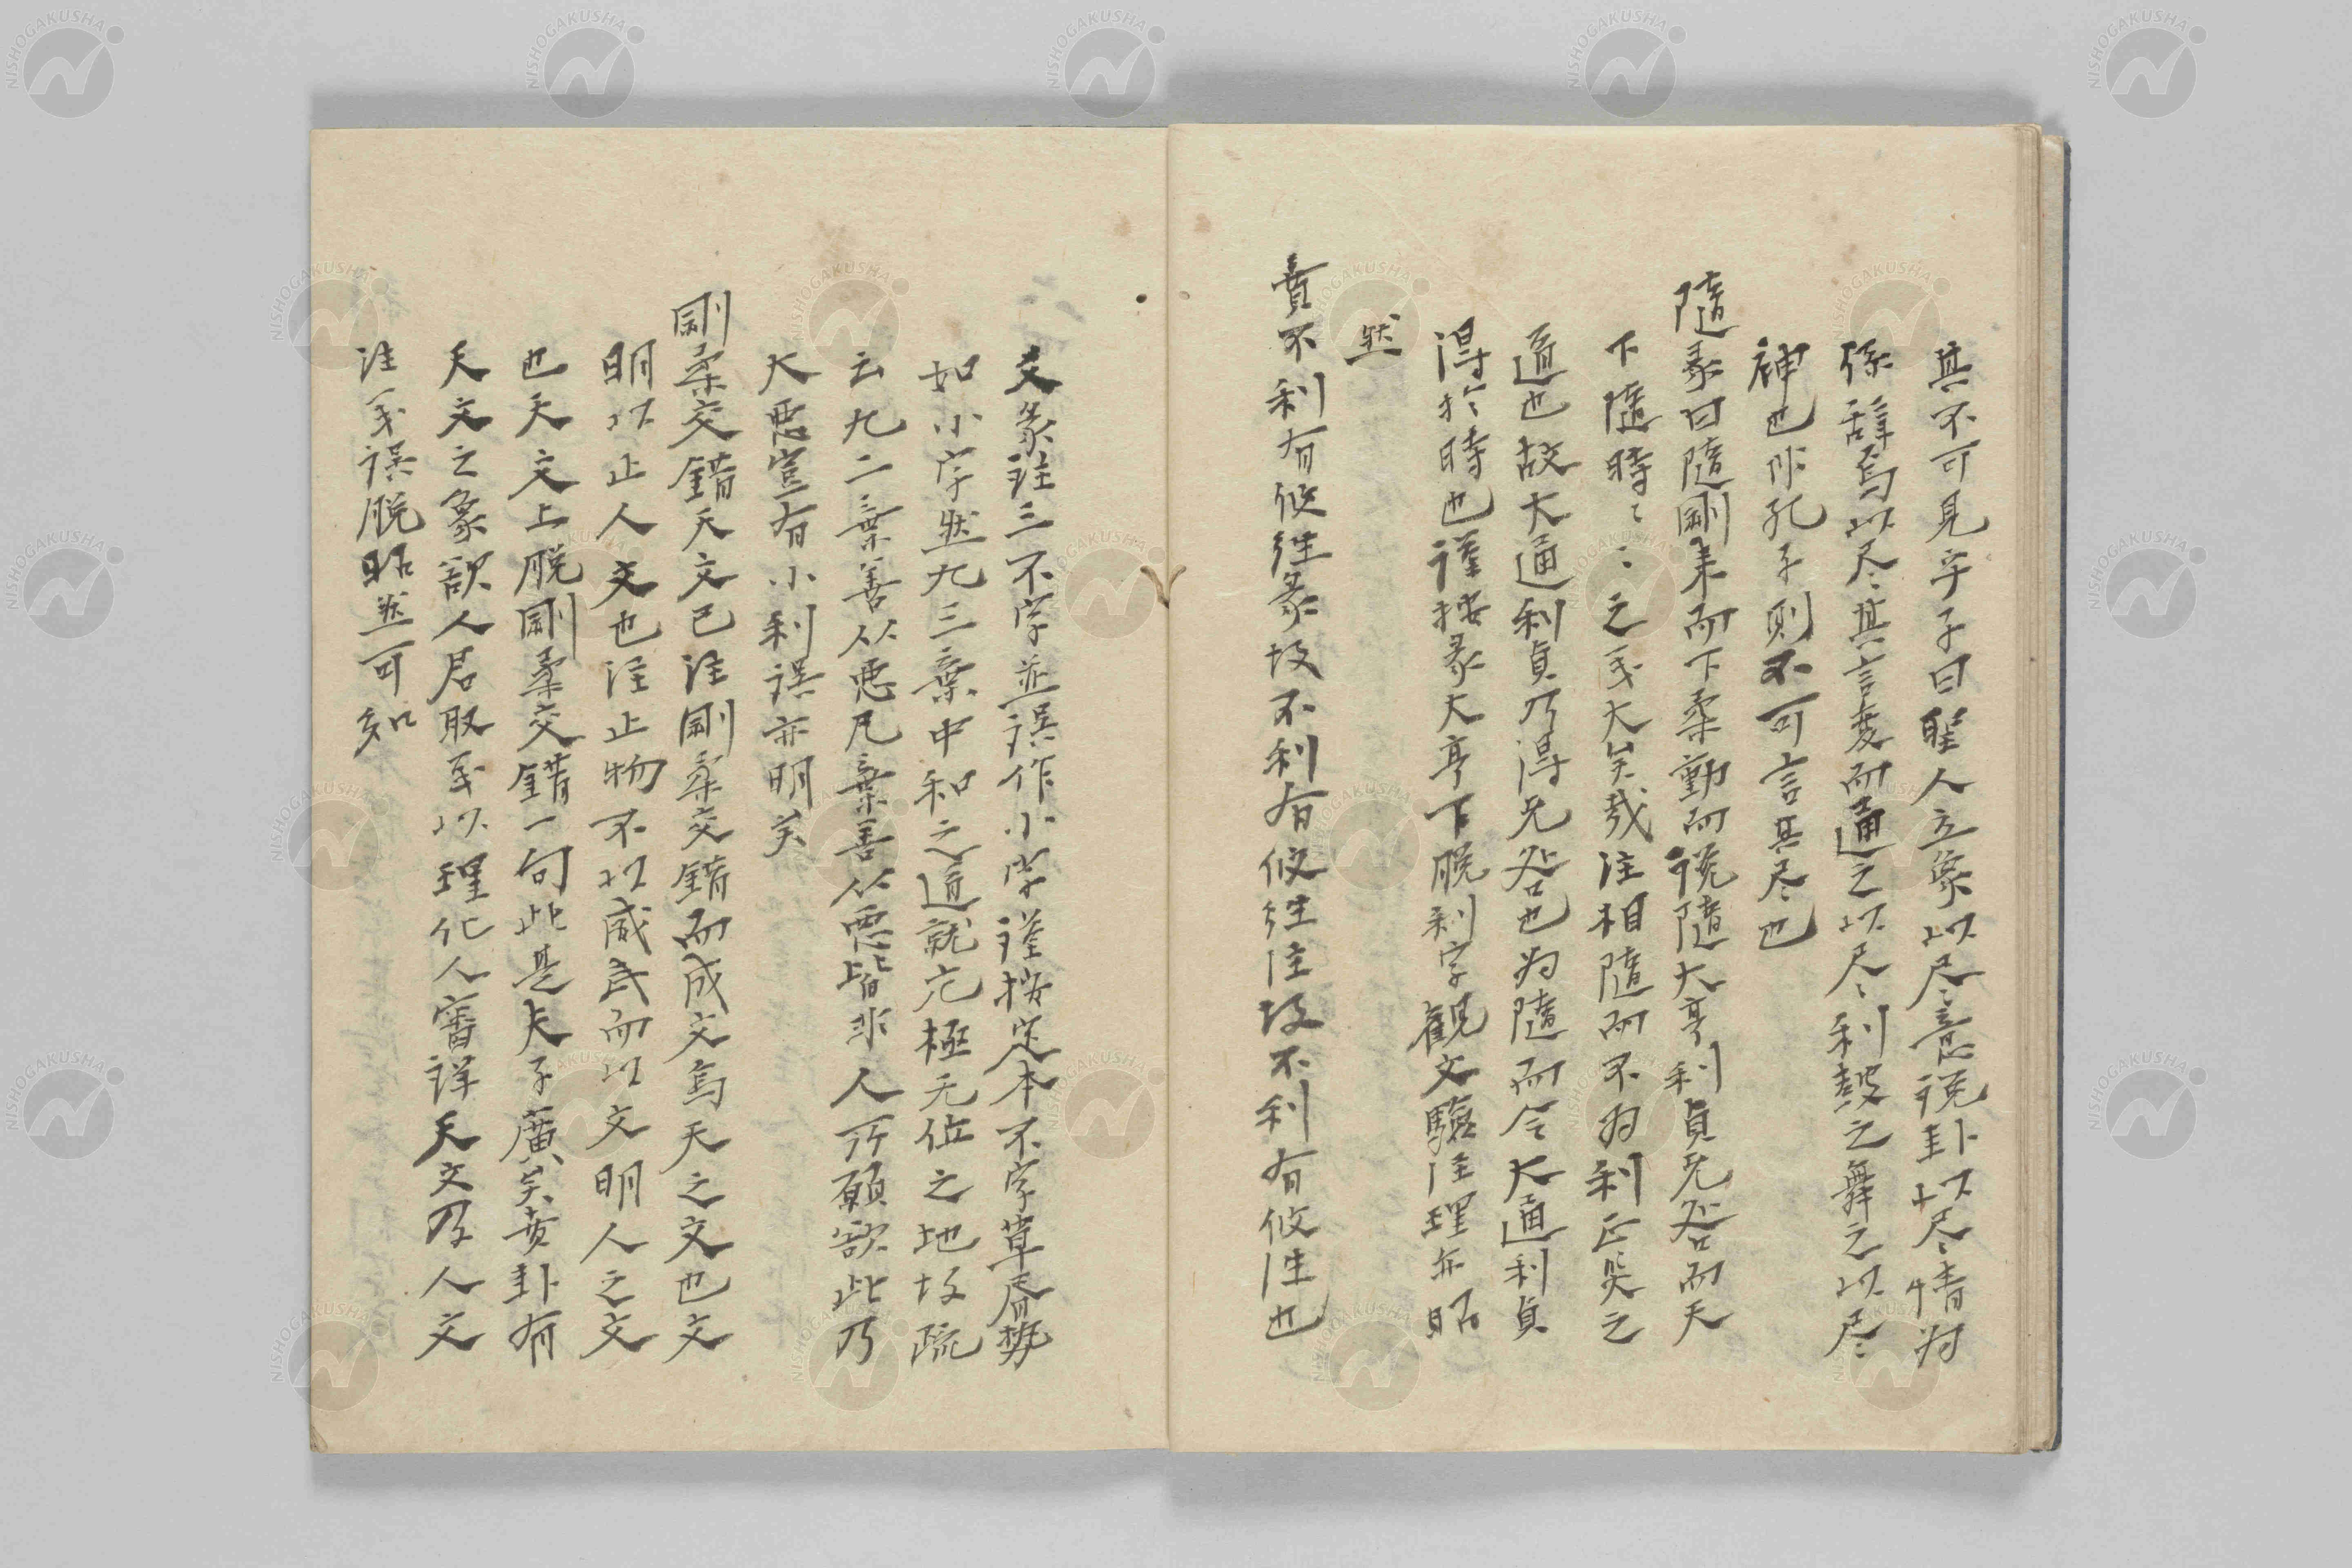 其不可見乎子曰聖人立象以尽意設卦以尽情偽
係辞焉以尽其言変而通之以尽利鼓之舞之以尽
神也非孔子則不可言其尽也
隨彖曰隨剛来而下柔動而説隨大亨利貞无咎而天
下隨時〻〻之義大矣哉注相隨而不為利正災之
道也故大通利貞乃得无咎也為隨而令大通利貞
得於時也謹按彖大亨下脱利字観文驗注理亦昭
然
賁不利有攸往彖故不利有攸往注故不利有攸往也
爻彖注三不字並誤作小字謹按定本不字草唇勢
如小字然九三棄中和之道就亢極无位之地故疏
云九二棄善从悪凡棄善从悪皆非人所願欲此乃
大悪豈有小利誤亦明矣
剛柔交錯天文已注剛柔交錯而成文焉天之文也文
明以止人文也注止物不以威武而以文明人之文
也天文上脱剛柔交錯一句此是夫子廣美賁卦有
天文之象欲人君取義以理化人審詳天文及人文
注義誤脱昭然可知